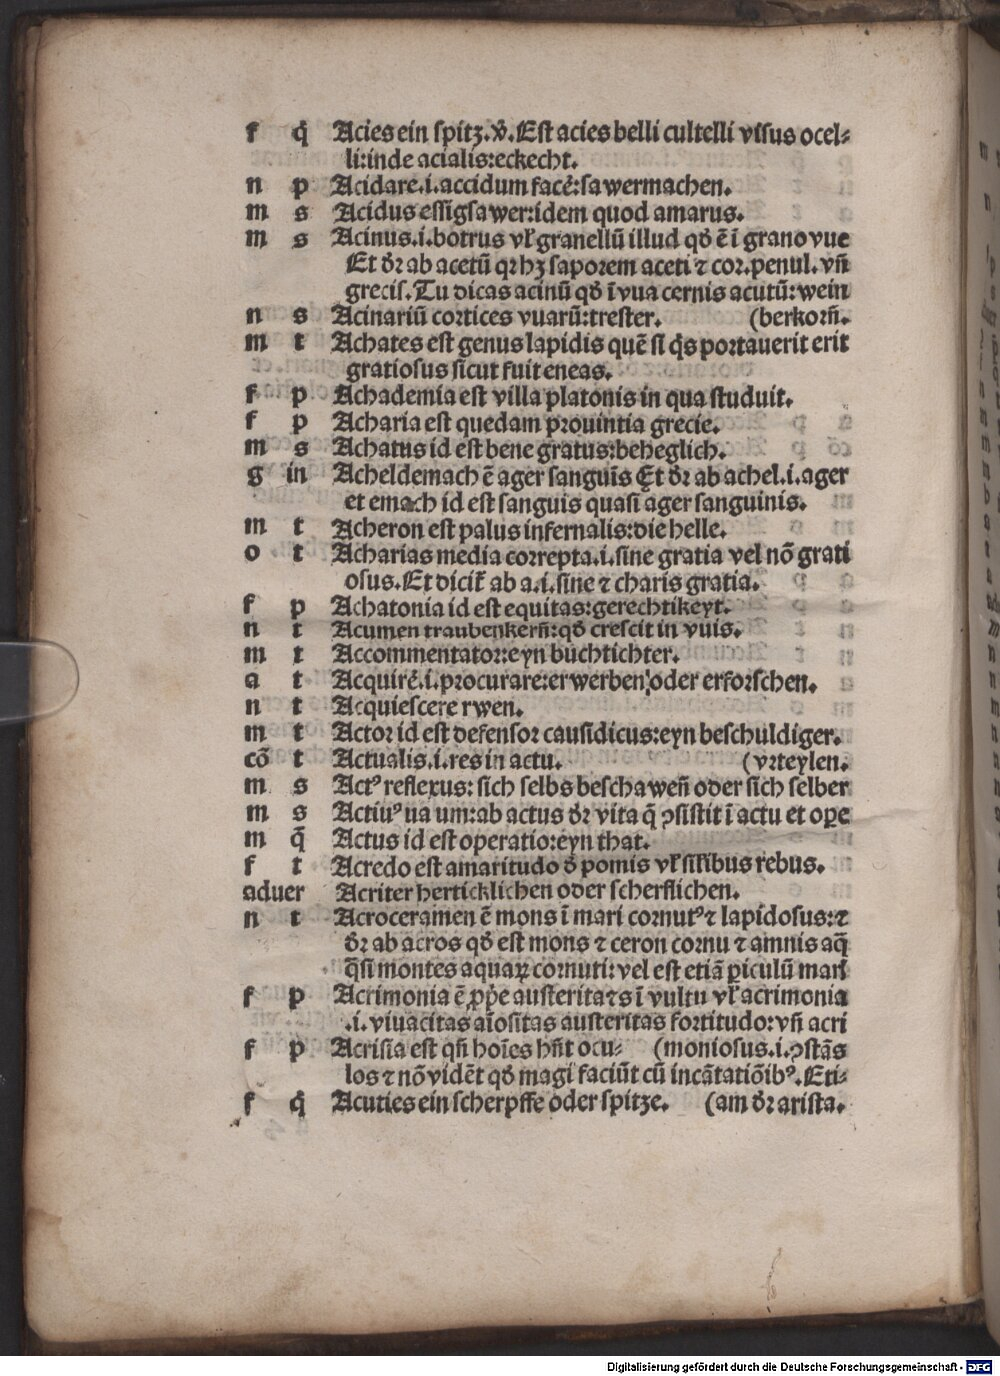 f q̃ Acies ein spitz.v̉. Est acies belli cultelli visus ocel⸗
li:inde acialis:eckecht.
n p Acidare.i.accidum facẽ:sawermachen.
m s Acidus essigsawer:idem quod amarus.
m s Acinus.i.botrus vł granellũ illud qđ ẽ ĩ grano vue
Et đr ab acetũ qr hꝫ saporem aceti ⁊ cor.penul. vñ
grecis. Tu dicas acinũ qđ ĩ vua cernis acutũ:wein
n s Acinariũ cortices vuarũ:trester. (berkorñ.
m t Achates est genus lapidis quẽ si q̃s portauerit erit
gratiosus sicut fuit eneas.
f p Achademia est villa platonis in qua studuit.
f p Acharia est quedam prouintia grecie.
m s Achatus id est bene gratus:beheglich.
g in Acheldemach ẽ ager sanguĩs Et đr ab achel.i.ager
et emach id est sanguis quasi ager sanguinis.
m t Acheron est palus infernalis:die helle.
o t Acharias media correpta.i.sine gratia vel nõ grati
osus. Et dicit̃ ab a.i.sine ⁊ charis gratia.
f p Achatonia id est equitas:gerechtikeyt.
n t Acumen traubenkerñ:qđ crescit in vuis.
m t Accommentator:eyn buchtichter.
a t Acquirẽ.i.procurare:erwerben oder erforschen.
n t Acquiescere rwen.
m t Actor id est defensor causidicus:eyn beschuldiger.
cõ t Actualis.i.res in actu. (vrteylen.
m s Actꝰ reflexus: sich selbs beschaweñ oder sich selber
m s Actiuꝰ ua um:ab actus đr vita q̃ ꝯsistit ĩ actu et oꝑe
m q̃ Actus id est operatio:eyn that.
f t Acredo est amaritudo đ pomis vł siłibus rebus.
aduer Acriter herticklichen oder scherflichen.
n t Acroceramen ẽ mons ĩ mari cornutꝰ ⁊ lapidosus:⁊
đr ab acros qđ est mons ⁊ ceron cornu ⁊ amnis aq̃
q̃si montes aquaꝝ cornuti:vel est etiã ꝑiculũ mari
f p Acrimonia ẽ ꝓp̃e austeritats ĩ vultu vł acrimonia
.i. viuacitas aĩositas austeritas fortitudo:vñ acri
f p Acrisia est qñ hoĩes hñt ocu⸗ (moniosus.i.ꝯstãs
los ⁊ nõ vidẽt qđ magi faciũt cũ incãtatiõibꝰ. Eti⸗
f q̃ Acuties ein scherpffe oder spitze. (am đr arista.
Digitalisierung gefördert durch die Deutsche Forschungsgemeinschaft - DFG